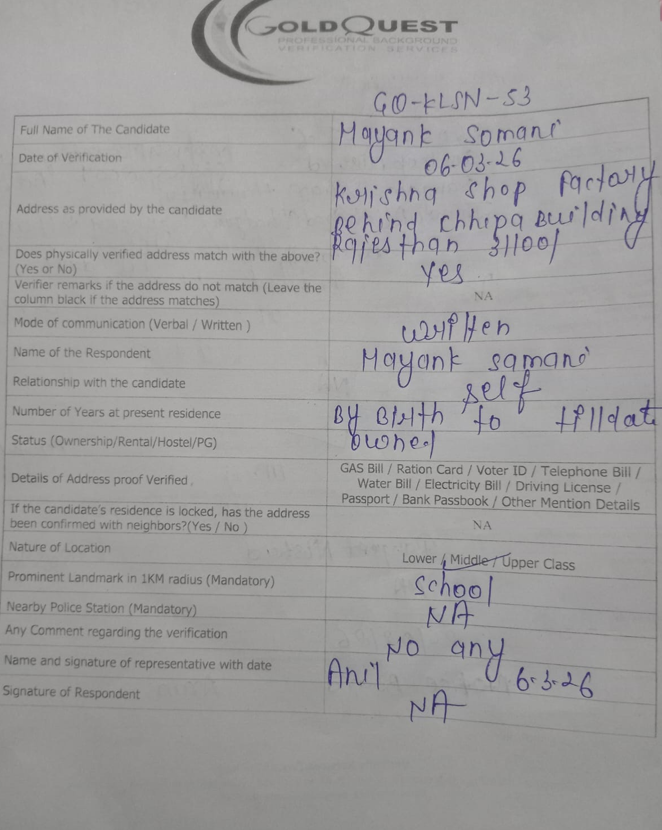 GOLDQUEST
PROFESSIONAL BACKGROUND
VERIFICATION SERVICES
GQ-KLSN-53
Full Name of The Candidate Mayank Somani
Date of Verification 06-03-26
Address as provided by the candidate Krishna shop Factory
Behind chhipa Building
Rajesthan 311001
Does physically verified address match with the above?
(Yes or No) Yes
Verifier remarks if the address do not match (Leave the
column black if the address matches) NA
Mode of communication (Verbal / Written ) written
Name of the Respondent Mayank samani
Relationship with the candidate self
Number of Years at present residence By Birth to tilldate
Status (Ownership/Rental/Hostel/PG) owned
Details of Address proof Verified GAS Bill / Ration Card / Voter ID / Telephone Bill /
Water Bill / Electricity Bill / Driving License /
Passport / Bank Passbook / Other Mention Details
If the candidate's residence is locked, has the address
been confirmed with neighbors?(Yes / No ) NA
Nature of Location Lower / Middle / Upper Class
Prominent Landmark in 1KM radius (Mandatory) School
Nearby Police Station (Mandatory) NA
Any Comment regarding the verification NO any
Name and signature of representative with date Anil 6-3-26
Signature of Respondent NA